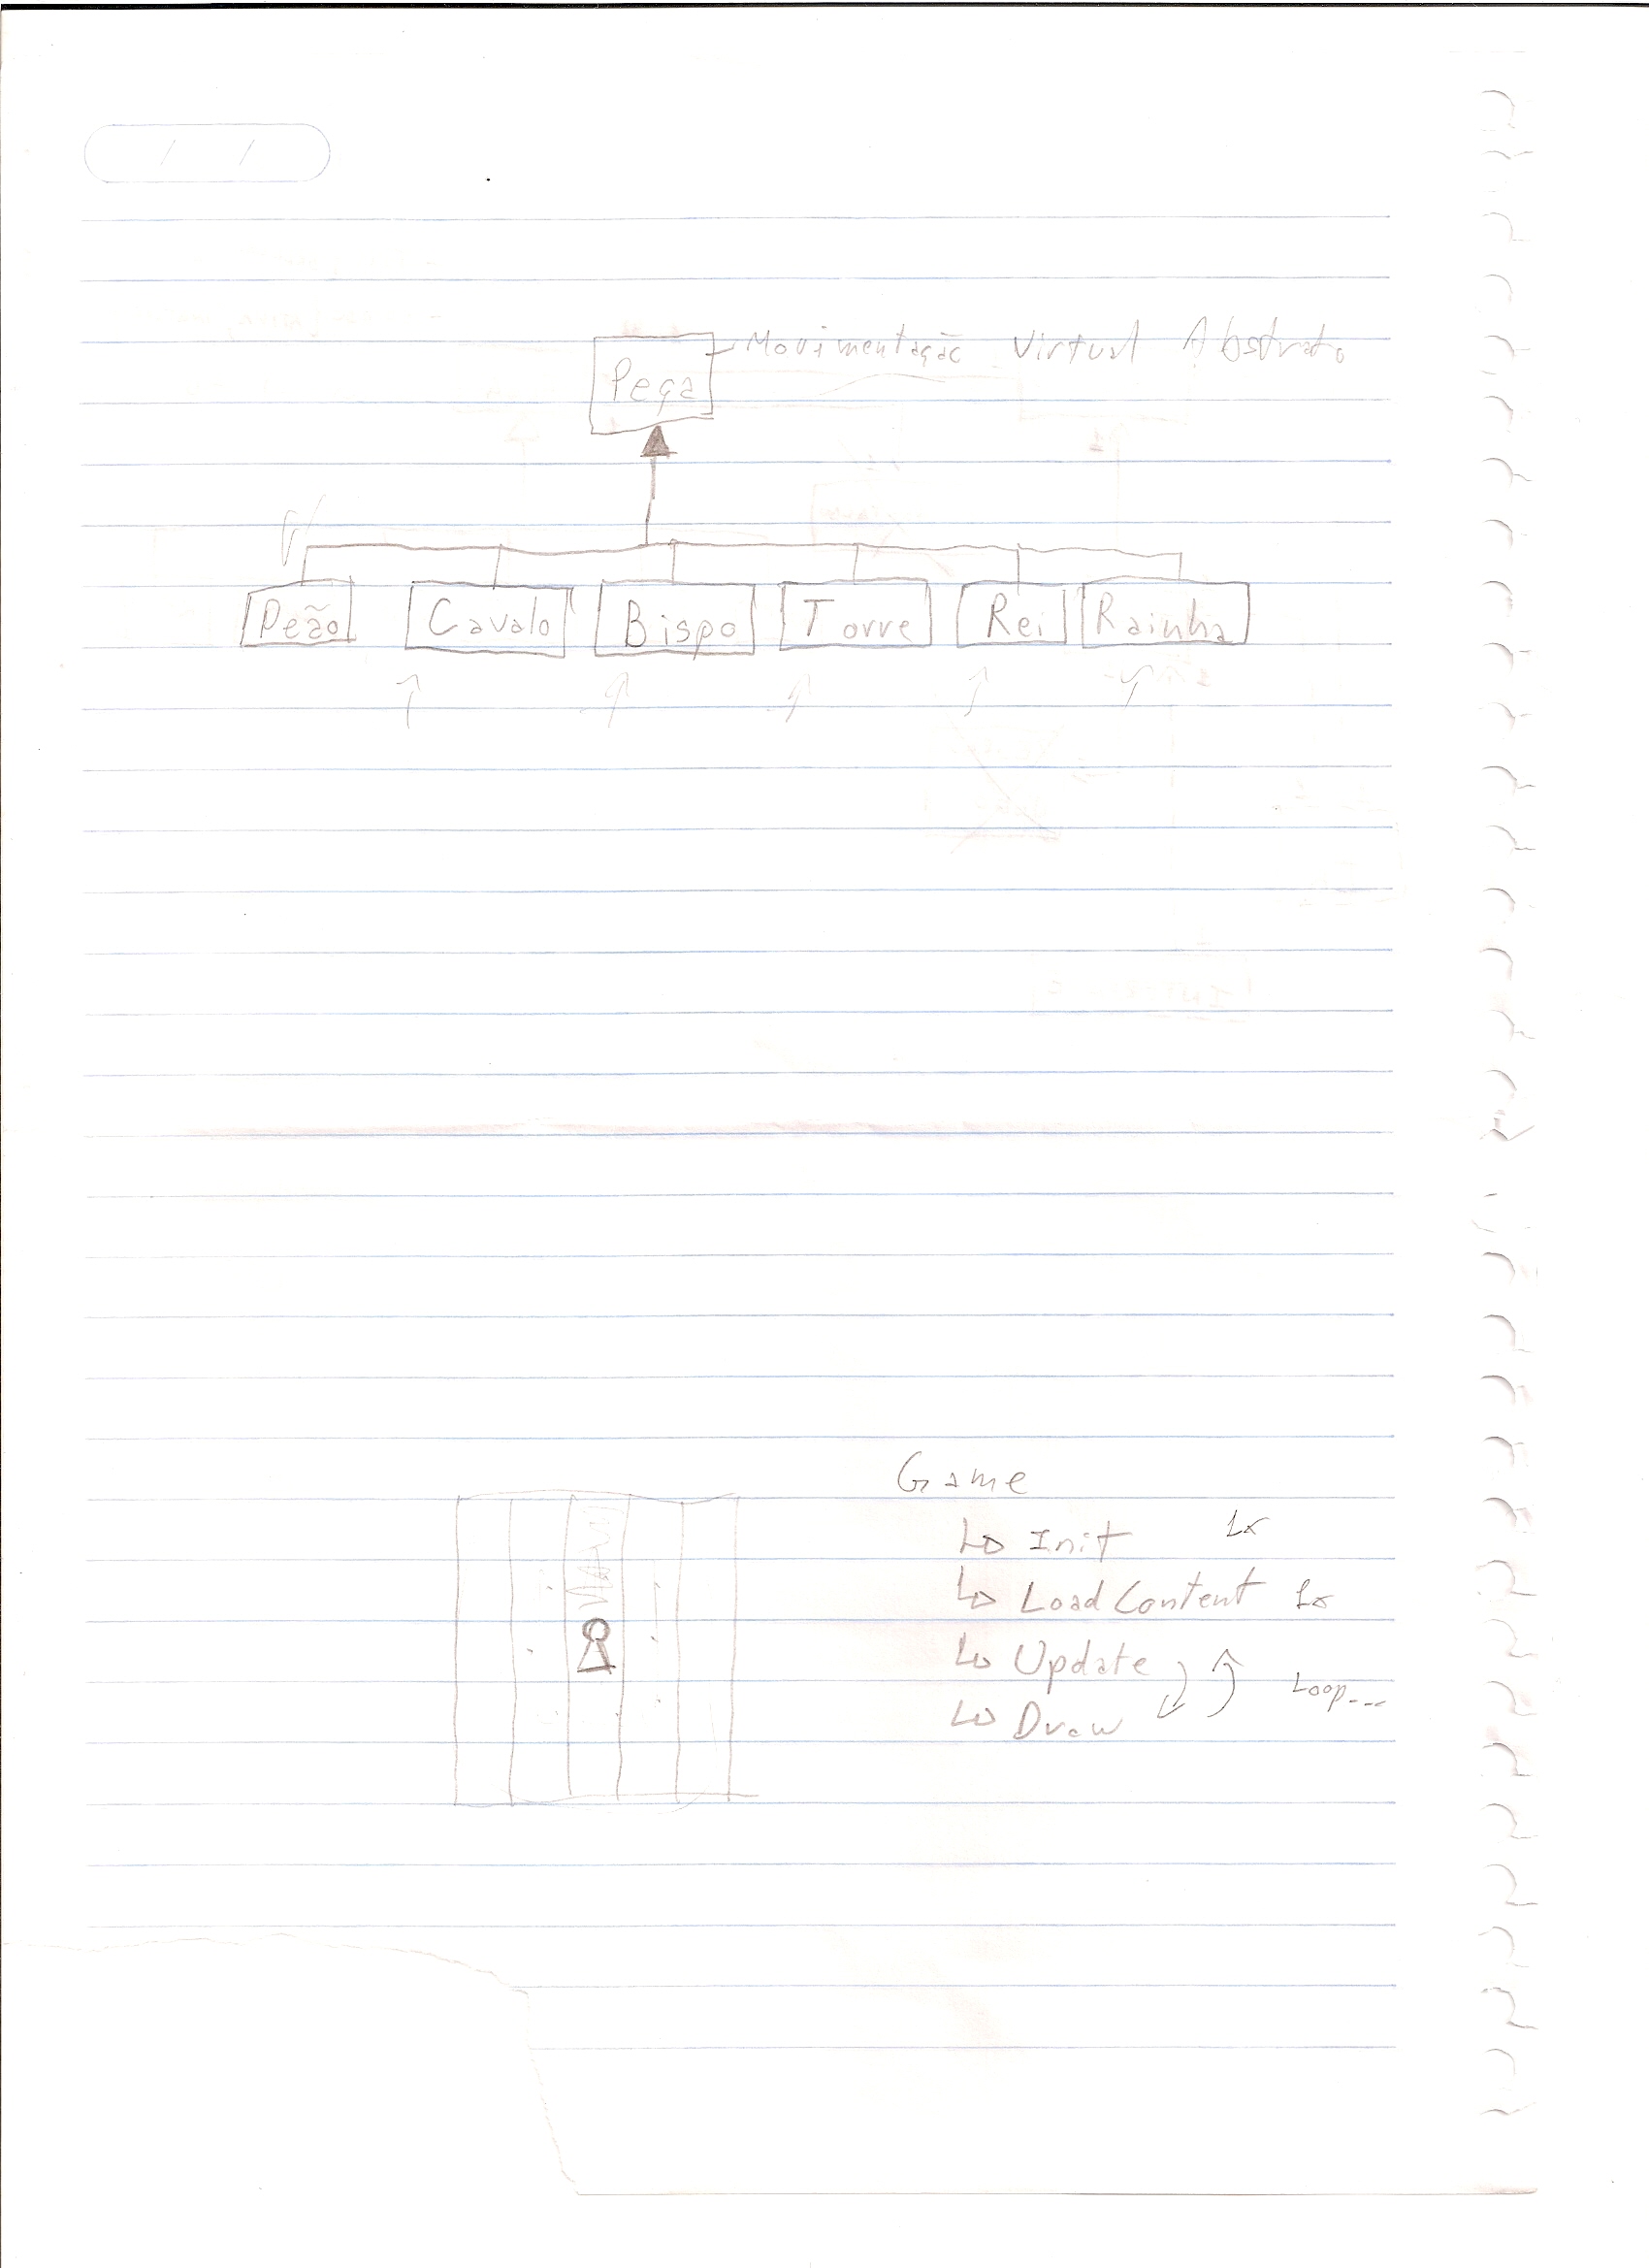 / /
Peça Movimentação Virtual Abstrato
Peão Cavalo Bispo Torre Rei Rainha
Game
Init 1x
Load Content 1x
Update
Loop...
Draw